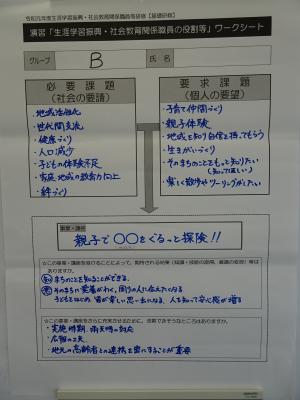 令和元年度生涯学習振興・社会教育関係職員等研修【基礎研修】
演習「生涯学習振興・社会教育関係職員の役割等」ワークシート
グループ B 氏名
必要課題
(社会の要請)
・地域活性化
・世代間交流
・健康づくり
・人口減少
・子どもの体験不足
・家庭・地域の教育力向上
・絆づくり
要求課題
(個人の要望)
・子育て仲間づくり
・親子体験
・地域を知り自信を持ってもらう
・生きがいづくり
・そのまちのことをもっと知りたい
(知ってほしい)
・楽しく散歩やツーリングがしたい
事業・講座
親子で〇〇をぐるっと探険!!
☆この事業・講座を受けることによって、期待される結果(知識・技術の習得、意識の変容)等は
ありますか。
まちのことを知ることができる。
そのまちに愛着がわく、周りの人に伝えたくなる
子どもはじめ、皆が楽しい思い出になる、人を知って安心感が増す
☆この事業・講座をさらに充実させるために、改善できそうなところはありますか。
・実施時期、雨天時の対応
・広報の工夫
・地元の高齢者との連携を密にすることが重要